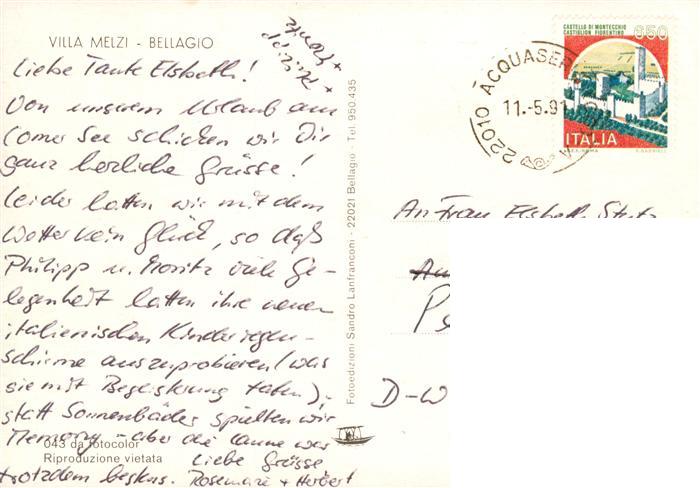 VILLA MELZI - BELLAGIO
Liebe Tante Elsbeth!
Von unserem Urlaub am
Comer See schicken wir Dir
ganz herzliche Grüsse!
Leider hatten wir mit dem
Wetter kein Glück, so daß
Philipp u. Moritz viele Ge-
legenheit hatten ihre neuen
italienischen Kinderregen-
schirme auszuprobieren (was
sie mit Begeisterung taten),
statt Sonnenbäder spielten wir
Memory - aber die Laune war
trotzdem bestens.
Liebe Grüsse
Rosemarie + Herbert
+ Philipp
+ Moritz
043 da fotocolor
Riproduzione vietata
Fotoedizioni Sandro Lanfranconi - 22021 Bellagio - Tel. 950.435
22010 ACQUASER
11.-5.91
CASTELLO DI MONTECCHIO
CASTIGLION FIORENTINO
650
ITALIA
An Frau Elsbeth Stutz
D-W